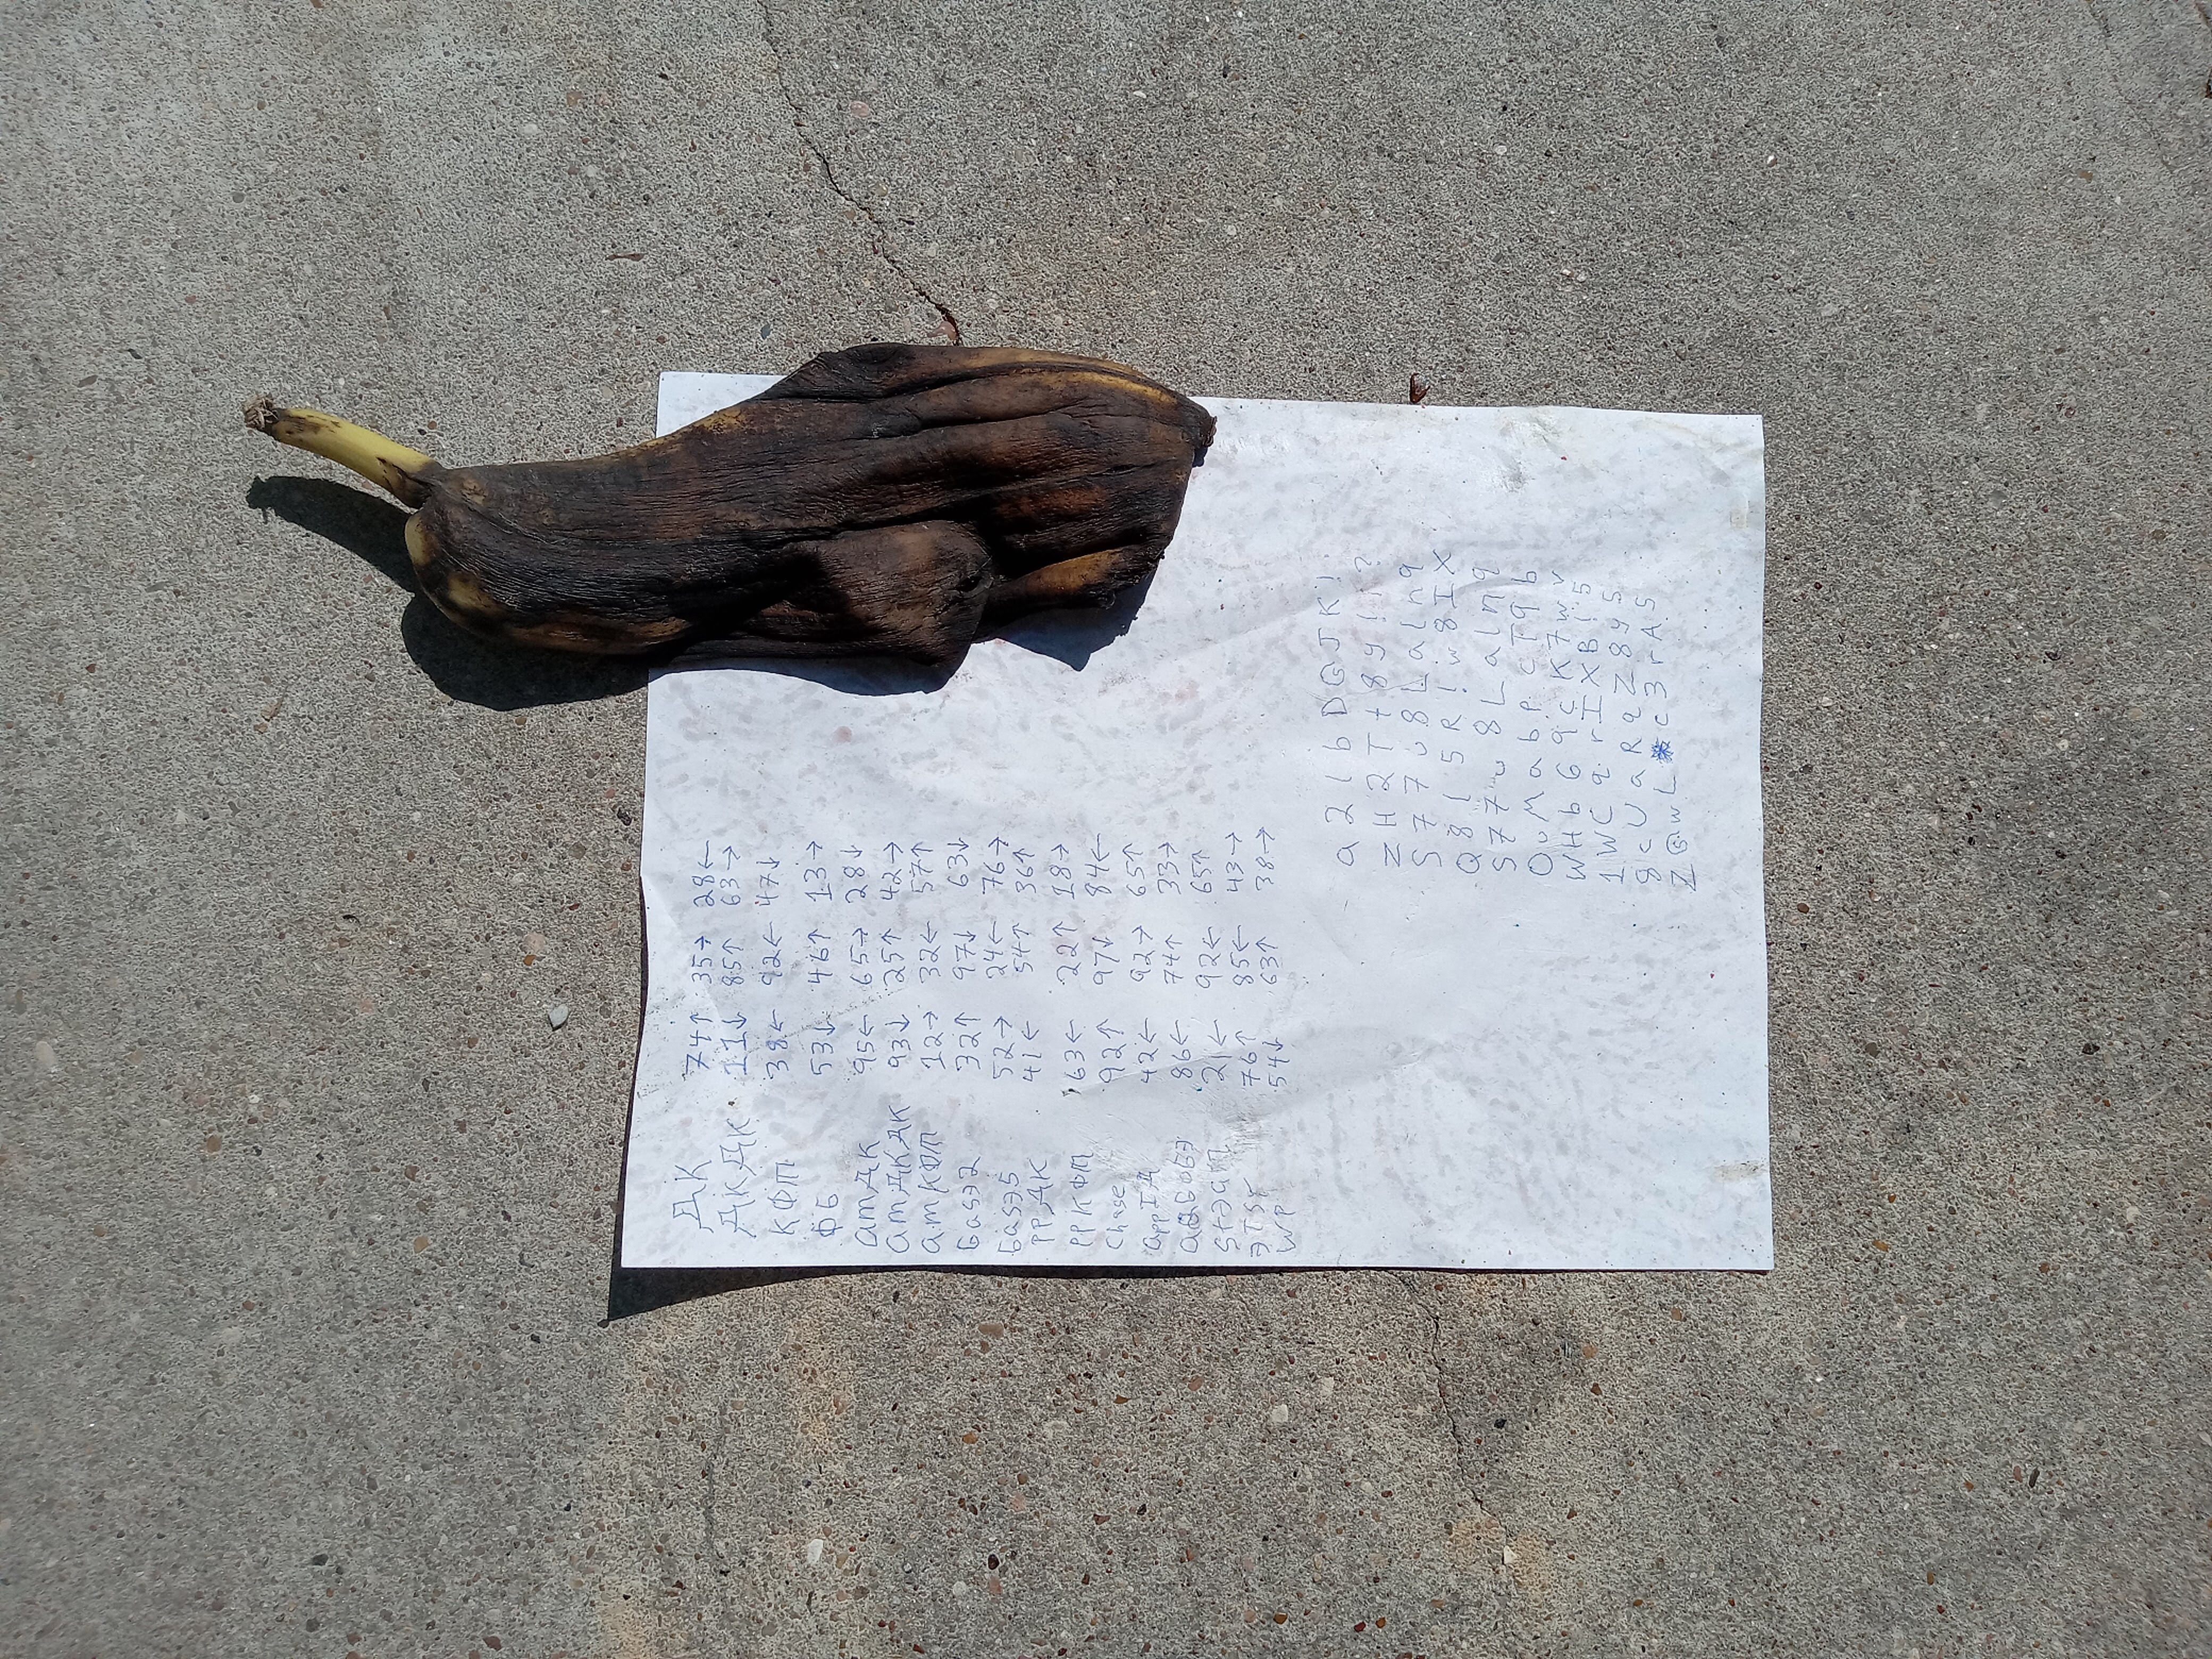 ДК 74↑ 35→ 28←
ДКДК 11↓ 85↑ 63→
КФП 38← 92← 47↓
ФБ 53↓ 46↑ 13→
amДК 95← 65→ 28↓
amДКДК 93↓ 25↑ 42→
amКФП 12→ 32← 57↑
Баsэ2 32↑ 97↓ 63↓
Баsэ5 52→ 24← 76→
PPДК 41← 54↑ 36↑
PPКФП 63← 22↑ 18→
Chase 92↑ 97↓ 84←
appIД 42← 92→ 65↑
86← 74↑ 33→
stэam 21← 92← 65↑
эTSY 76↑ 85← 43→
WP 54↓ 63↑ 38→
a 2 l b D G J K !
Z H 2 T t 8 y ! i ?
S 7 7 u 8 L a l n 9
Q 8 l 5 R ! w 8 I X
S 7 7 u 8 L a l n 9
O u M a b P c T 9 b
W H b 6 9 c K 7 w v
1 W C q r I X B ! 5
8 c U a R q Z 8 y 5
Z G w L c 3 r A 5